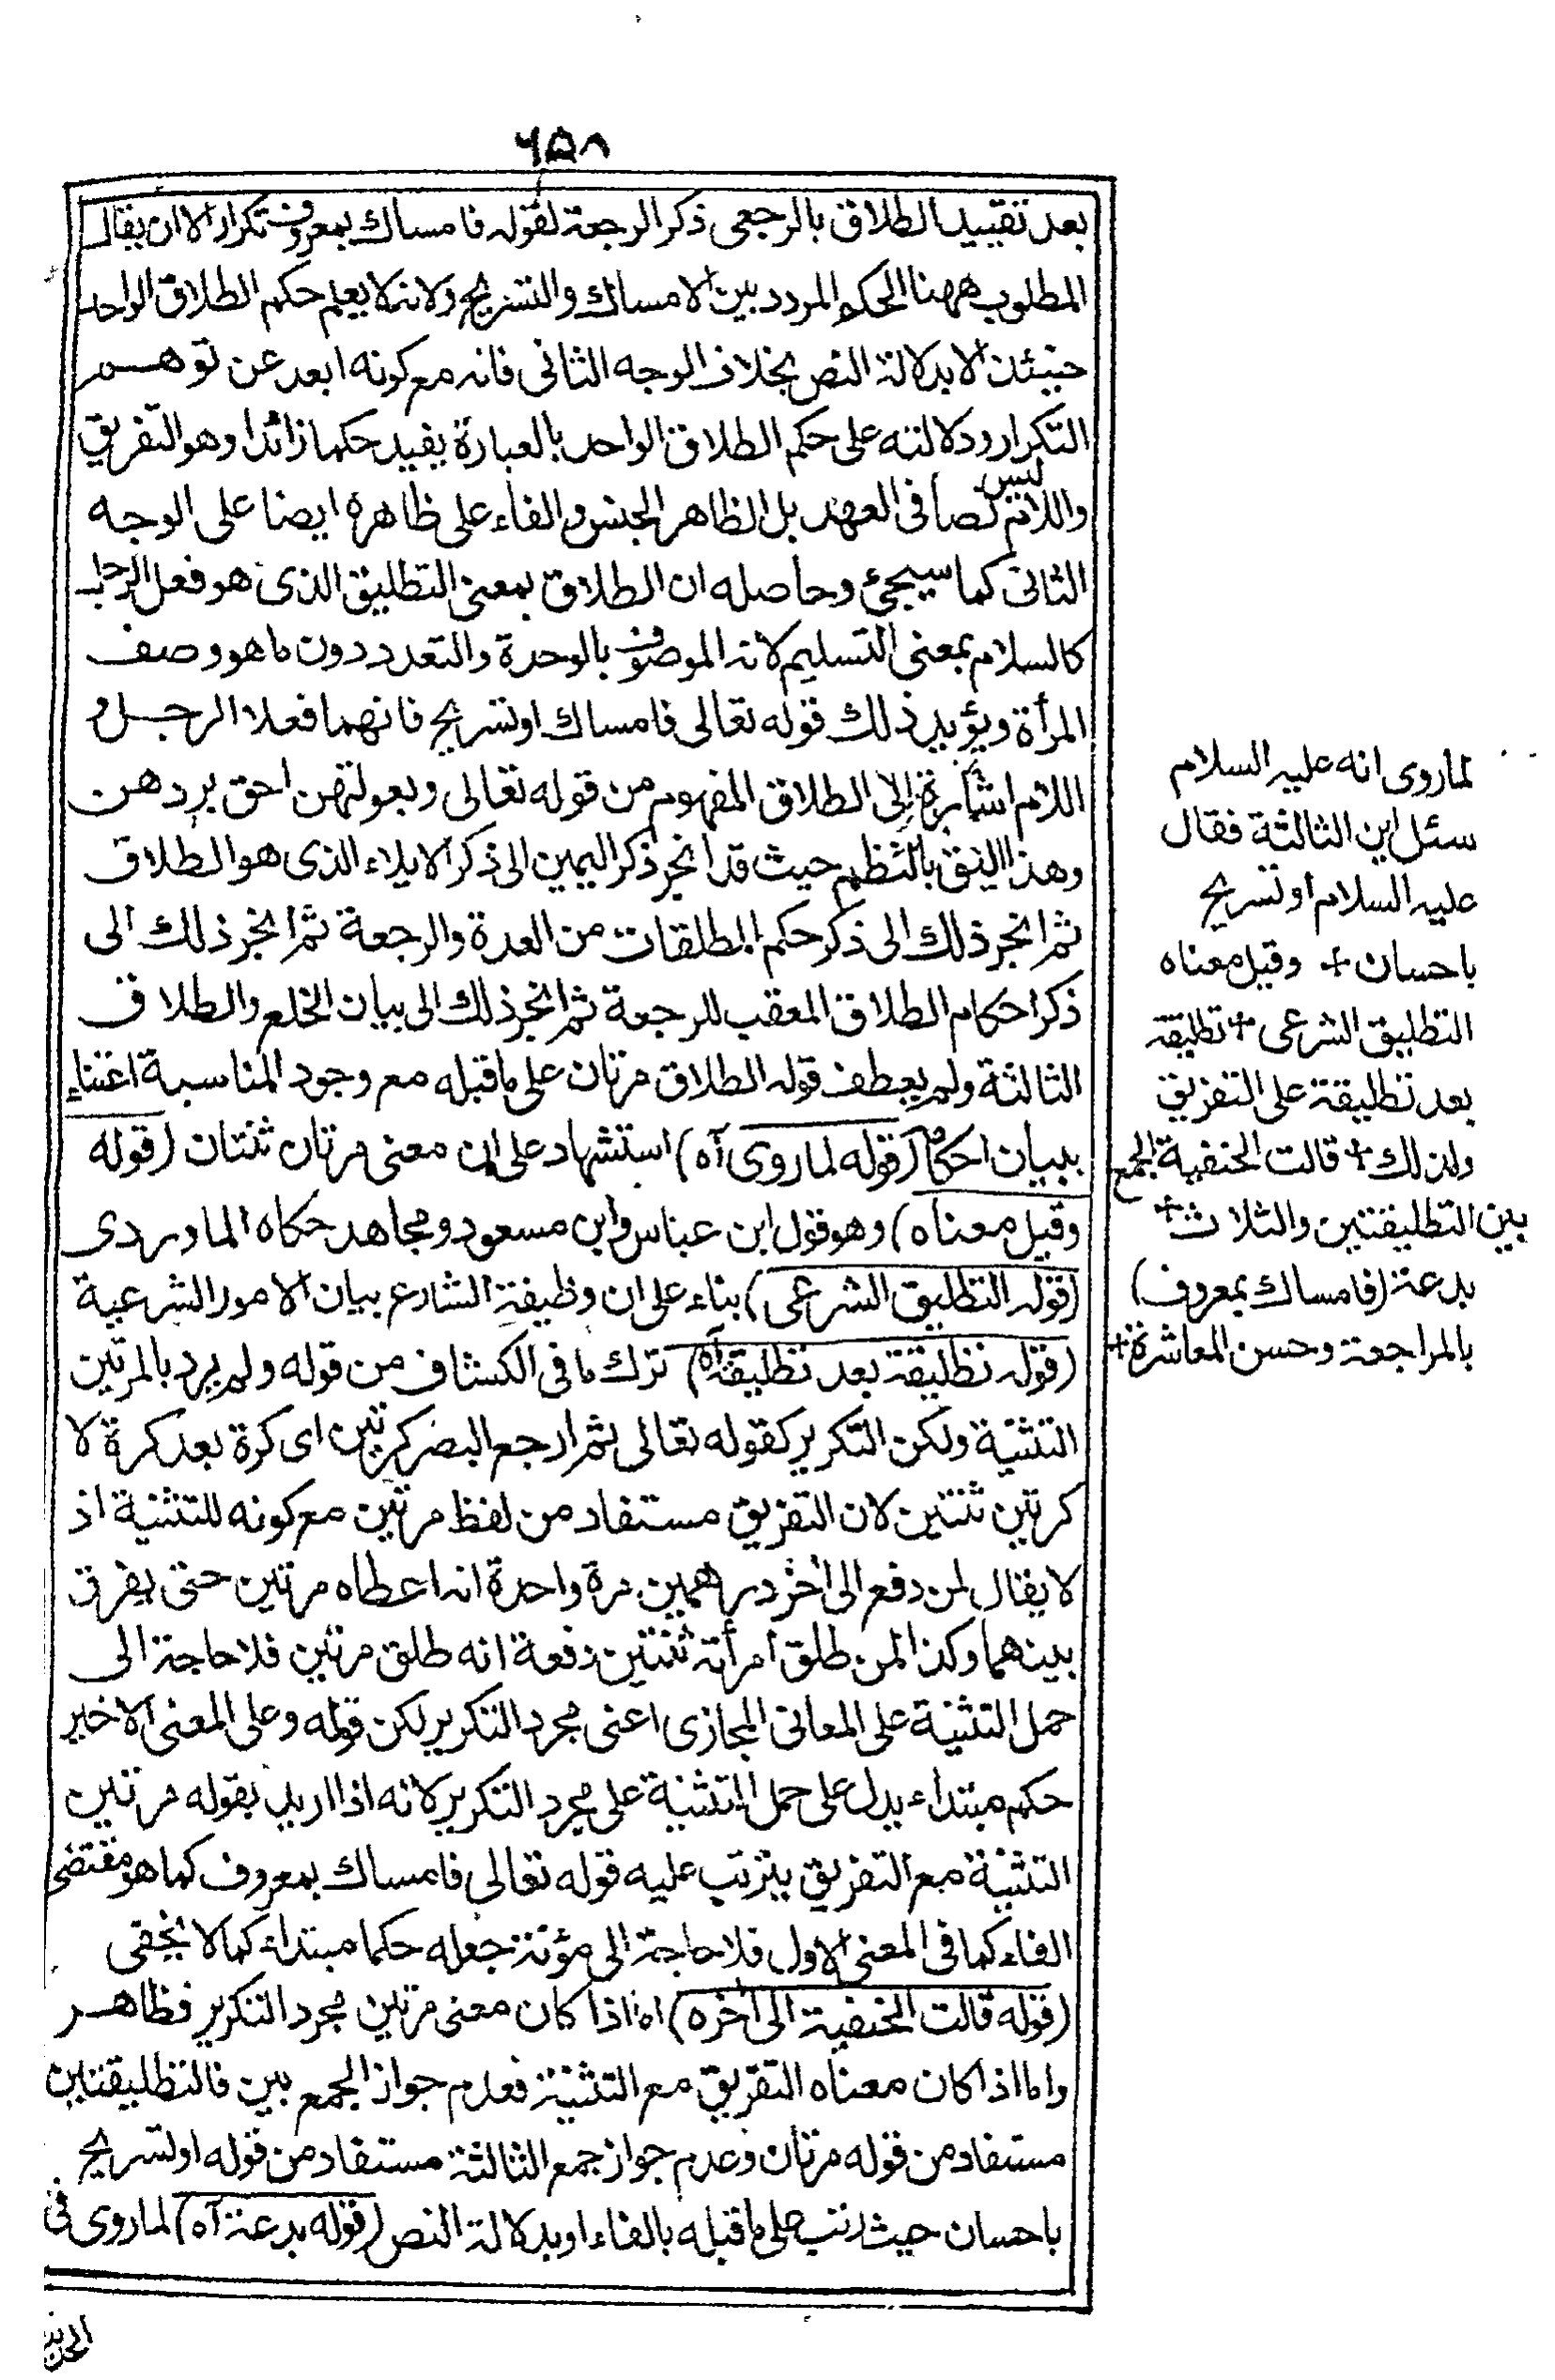 ٦٥٨
بعد تقييد الطلاق بالرجعى ذكر الرجعة لقوله فامساك بمعروف تكرار الا ان يقال
المطلوب ههنا الحكم المردد بين الامساك والتسريح ولانه لا يعلم حكم الطلاق الواحد
حينئذ الا بدلالة النص بخلاف الوجه الثانى فانه مع كونه ابعد عن توهم
التكرار ودلالته على حكم الطلاق الواحد بالعبارة يفيد حكما زائدا وهو التفريق
واللام ليس نصا فى العهد بل الظاهر الجنس والفاء على ظاهره ايضا على الوجه
الثانى كما سيجئ وحاصله ان الطلاق بمعنى التطليق الذى هو فعل الرجل
كالسلام بمعنى التسليم لانه الموصوف بالوحدة والتعدد دون ما هو وصف
المرأة ويؤيد ذلك قوله تعالى فامساك او تسريح فانهما فعلا الرجل و
اللام اشارة الى الطلاق المفهوم من قوله تعالى وبعولتهن احق بردهن
وهذا اليق بالنظم حيث قد انجر ذكر اليمين الى ذكر الايلاء الذى هو الطلاق
ثم انجر ذلك الى ذكر حكم المطلقات من العدة والرجعة ثم انجر ذلك الى
ذكر احكام الطلاق المعقب للرجعة ثم انجر ذلك الى بيان الخلع والطلاق
الثالثة ولم يعطف قوله الطلاق مرتان على ما قبله مع وجود المناسبة اعتناء
ببيان احكام (قوله لما روى آه) استشهاد على ان معنى مرتان ثنتان (قوله
وقيل معناه) وهو قول ابن عباس وابن مسعود ومجاهد حكاه الماوردى
(قوله التطليق الشرعى) بناء على ان وظيفة الشارع بيان الامور الشرعية
(قوله تطليقة بعد تطليقة آه) ترك ما فى الكشاف من قوله ولم يرد بالمرتين
التثنية ولكن التكرير كقوله تعالى ثم ارجع البصر كرتين اى كرة بعد كرة لا
كرتين ثنتين لان التفريق مستفاد من لفظ مرتين مع كونه للتثنية اذ
لا يقال لمن دفع الى اخر درهمين مرة واحدة انه اعطاه مرتين حتى يفرق
بينهما وكذا لمن طلق امرأته ثنتين دفعة انه طلق مرتين فلا حاجة الى
حمل التثنية على المعانى المجازى اعنى مجرد التكرير لكن قوله وعلى المعنى الاخير
حكم مبتداء يدل على حمل التثنية على مجرد التكرير لانه اذا اريد بقوله مرتين
التثنية مع التفريق يترتب عليه قوله تعالى فامساك بمعروف كما هو مقتضى
الفاء كما فى المعنى الاول فلا حاجة الى مؤنة جعله حكما مبتداء كما لا يخفى
(قوله قالت الحنفية الى آخره) اه اذا كان معنى مرتين مجرد التكرير فظاهر
واما اذا كان معناه التفريق مع التثنية فعدم جواز الجمع بين فالتطليقتين
مستفاد من قوله مرتان وعدم جواز جمع الثالثة مستفاد من قوله او تسريح
باحسان حيث رتب على ما قبله بالفاء او بدلالة النص (قوله بدعة آه) لما روى فى
لما روى انه عليه السلام
سئل اين الثالثة فقال
عليه السلام او تسريح
باحسان + وقيل معناه
التطليق الشرعى + تطليقة
بعد تطليقة على التفريق
ولذلك + قالت الحنفية الجمع
بين التطليقتين والثلاث +
بدعة (فامساك بمعروف)
بالمراجعة وحسن المعاشرة +